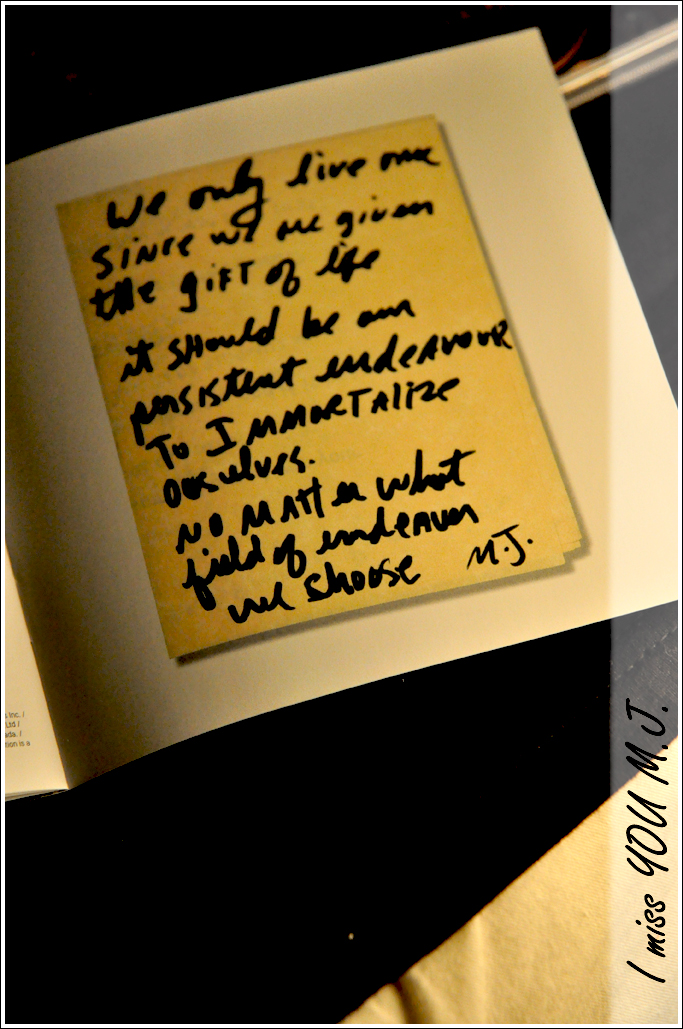 We only live once
SiNce we are given
the giFT of life
it SHould be our
persisteNt endeAvouR
To IMMORTAlize
Ourselves.
NO MATTer what
field of endeavor
we shoose M.J.
s Inc. /
Ltd /
ada. /
tion is a
I miss YOU M.J.